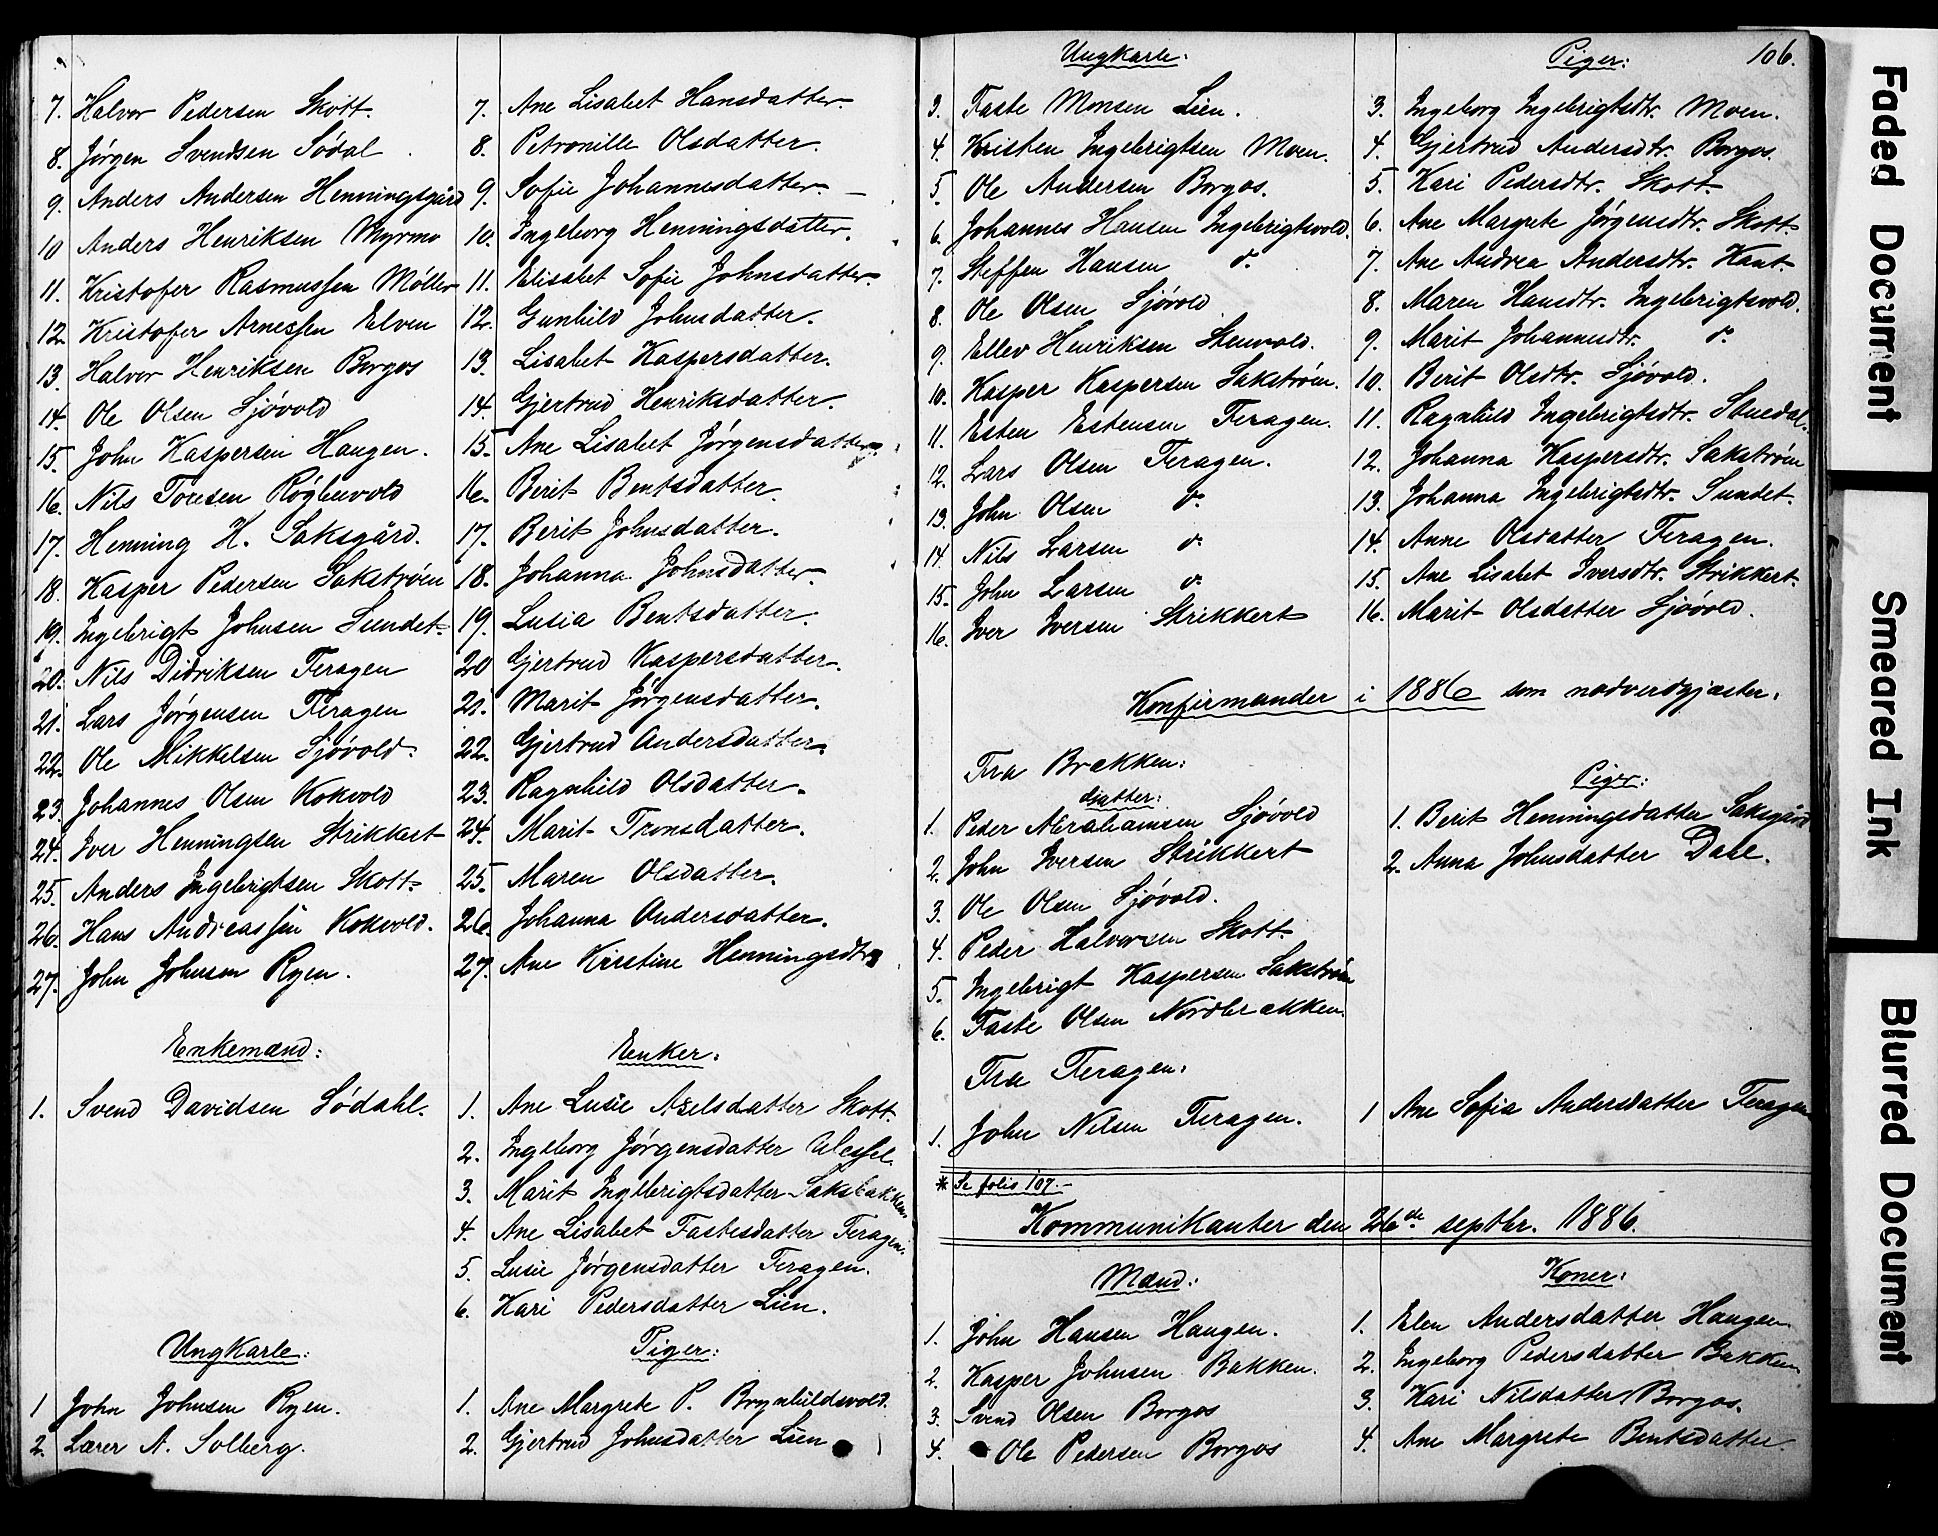 7. Halvor Pedersen Skott.
8. Jørgen Svendsen Södal
9. Anders Andersen Henningsgård
10 Anders Henriksen Myrmo
11. Kristofer Rasmussen Møller
12. Kristofer Arnessen Elven
13. Halvor Henriksen Borgos
14. Ole Olsen Sjövold
15. John Kaspersen Haugen.
16. Nils Toresen
17. Henning H. Saksgård.
18. Kasper Pedersen Sakström
19. Ingebrigt Johnsen Sundet.
20. Nils Didriksen Feragen
21. Lars Jørgensen Feragen
22. Ole Mikkelsen Sjövold.
23. Johannes Olsen Kokvold
24. Iver Henningsen Strikkert
25. Anders Ingebrigtsen Skott.
26. Hans Andreassen Kokvold.
27. John Johnsen Ryen.
Enkemænd:
1. Svend Davidsen Södahl.
Ungkarle:
1 John Johnsen Ryen.
2. Lærer A. Solberg.
7. Ane Lisabet Hansdatter
8. Petronille Olsdatter.
9. Sofie Johannesdatter.
10. Ingeborg Henningsdatter.
11. Elisabet Sofie Johnsdatter.
12. Gunhild Johnsdatter.
13. Lisabet Kaspersdatter.
14. Gjertrud Henriksdatter.
15. Ane Lisabet Jørgensdatter.
16. Berit Bentsdatter.
17. Berit Johnsdatter.
18. Johanna Johnsdatter.
19. Lusia Bentsdatter.
20 Gjertrud Kaspersdatter.
21. Marit Jørgensdatter.
22. Gjertrud Andersdatter.
23. Ragnhild Olsdatter.
24. Marit Tronsdatter.
25. Maren Olsdatter.
26. Johanna Andersdatter.
27. Ane Kirstine Henningsdtr.
Enker:
1. Ane Lusie Axelsdatter Skott.
2. Ingeborg Jørgensdatter Wessel.
3. Marit Ingebrigtsdatter Saksbakken
4. Ane Lisabet Fastesdatter Feragen.
5. Lusie Jørgensdatter Feragen.
6. Kari Pedersdatter Lien.
Piger:
1. Ane Margrete P. Brynhildsvold.
2. Gjertrud Johnsdatter Lien
106.
Ungkarle:
3. Faste Monsen Lien.
4. Kristen Ingebrigtsen Moen.
5. Ole Andersen Borgos.
6. Johannes Hansen Ingebrigtsvold.
7. Steffen Hansen do.
8. Ole Olsen Sjövold
9. Ellev Henriksen Stenvold.
10. Kasper Kaspersen Sakström.
11. Esten Estensen Feragen.
12. Lars Olsen Feragen.
13. John Olsen do.
14. Nils Larsen do.
15. John Larsen do.
16. Iver Iversen Strikkert
Piger:
3. Ingeborg Ingebrigtsdtr. Moen.
4. Gjertrud Andersdtr. Borgos.
5. Kari Pedersdtr. Skott.
6. Ane Margrete Jørgensdtr. Skott.
7. Ane Andrea Andersdtr. Kant.
8. Maren Hansdtr. Ingebrigtsvold.
9. Marit Johannesdtr. do.
10. Berit Olsdtr. Sjövold.
11. Ragnhild Ingebrigtsdtr. Stuedal.
12. Johanna Kaspersdtr. Sakström
13. Johanna Ingebrigtsdtr. Sundet.
14. Anne Olsdatter Feragen.
15. Ane Lisabet Iversdtr. Strikkert.
16. Marit Olsdatter Sjövold.
Konfirmander i 1886 som nadverdgjæster.
Fra Brækken:
Gutter:
1. Peder Abrahamsen Sjövold
2. John Iversen Strikkert
3. Ole Olsen Sjövold.
4. Peder Halvorsen Skott.
5. Ingebrigt Kaspersen Sakström
6. Faste Olsen Nordbrækken.
Piger:
1. Berit Henningsdatter Saksgård
2. Anna Johnsdatter Dale.
Fra Feragen:
1. John Nilsen Feragen.
1 Ane Sofia Andersdatter Feragen
* Se folio 107.
Kommunikanter den 26de septbr. 1886.
Mænd:
1. John Hansen Haugen.
2. Kasper Johnsen Bakken.
3. Svend Olsen Borgos
4. Ole Pedersen Borgos
Koner:
1. Elen Andersdatter Haugen.
2. Ingeborg Pedersdatter Bakken
3. Kari Nilsdatter Borgos.
4. Ane Margrete Bentsdatter.
Faded Document
Smeared Ink
Blurred Document